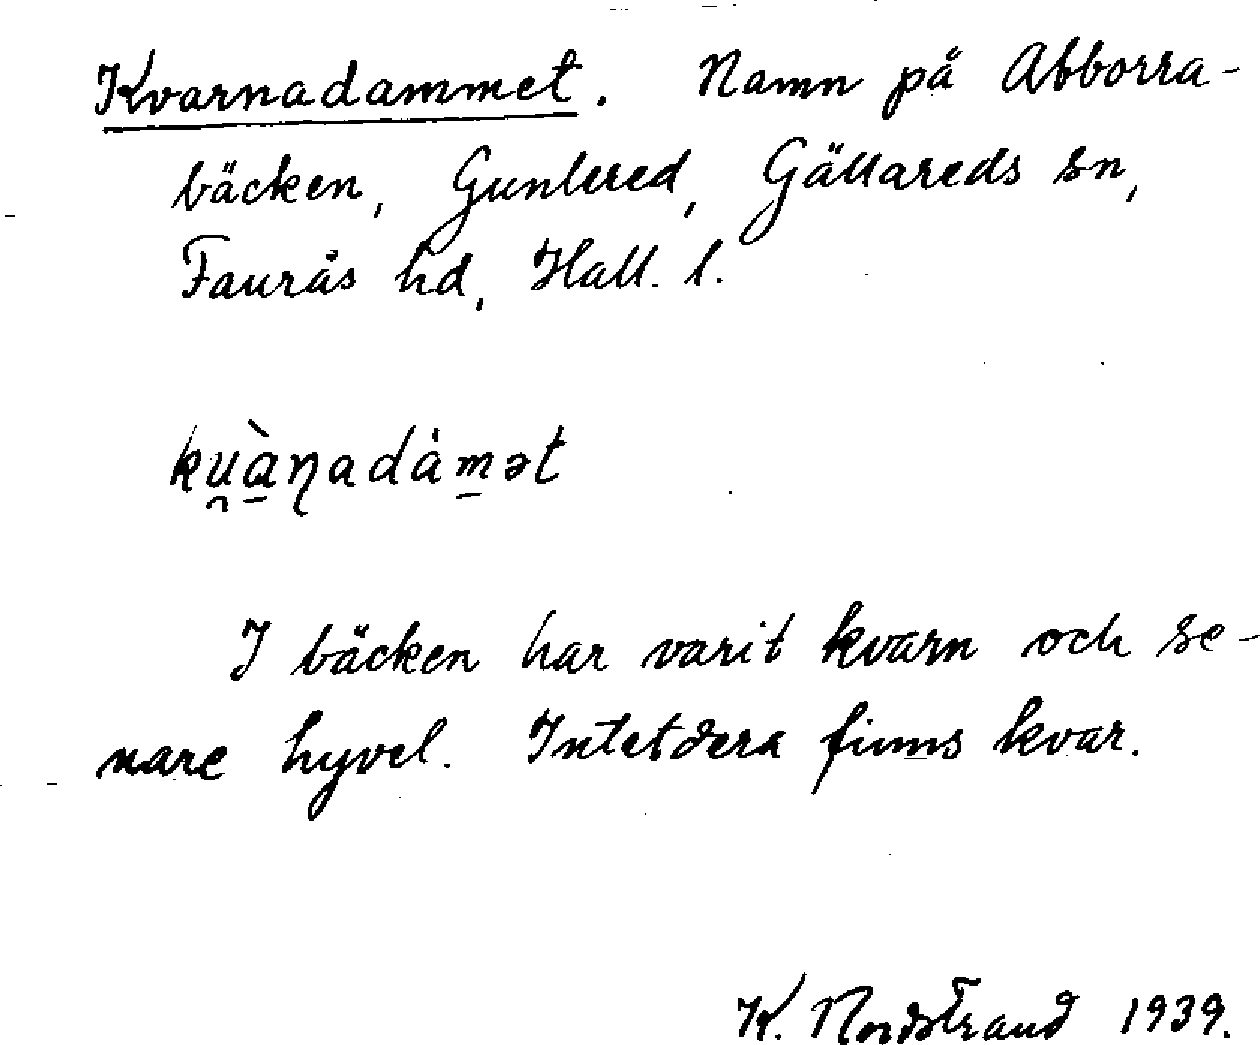 Kvarnadammet. Namn på Abborra-
bäcken, Gunlered, Gällareds sn,
Faurås hd, Hall. l.
ku̯à̱ɳadȧm̱ət
I bäcken har varit kvarn och se-
nare hyvel. Intetdera finns kvar.
K. Nordstrand 1939.